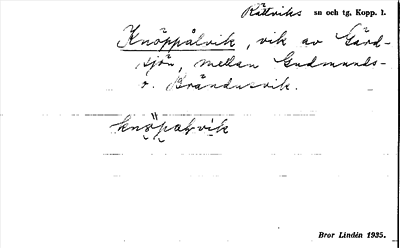 Rättviks sn och tg, Kopp. l.
Knöppålvik, vik av Gärd-
sjön, mellan Gudmunds-
o. Brändesvik.
knöpalvik
Bror Lindén 1935.